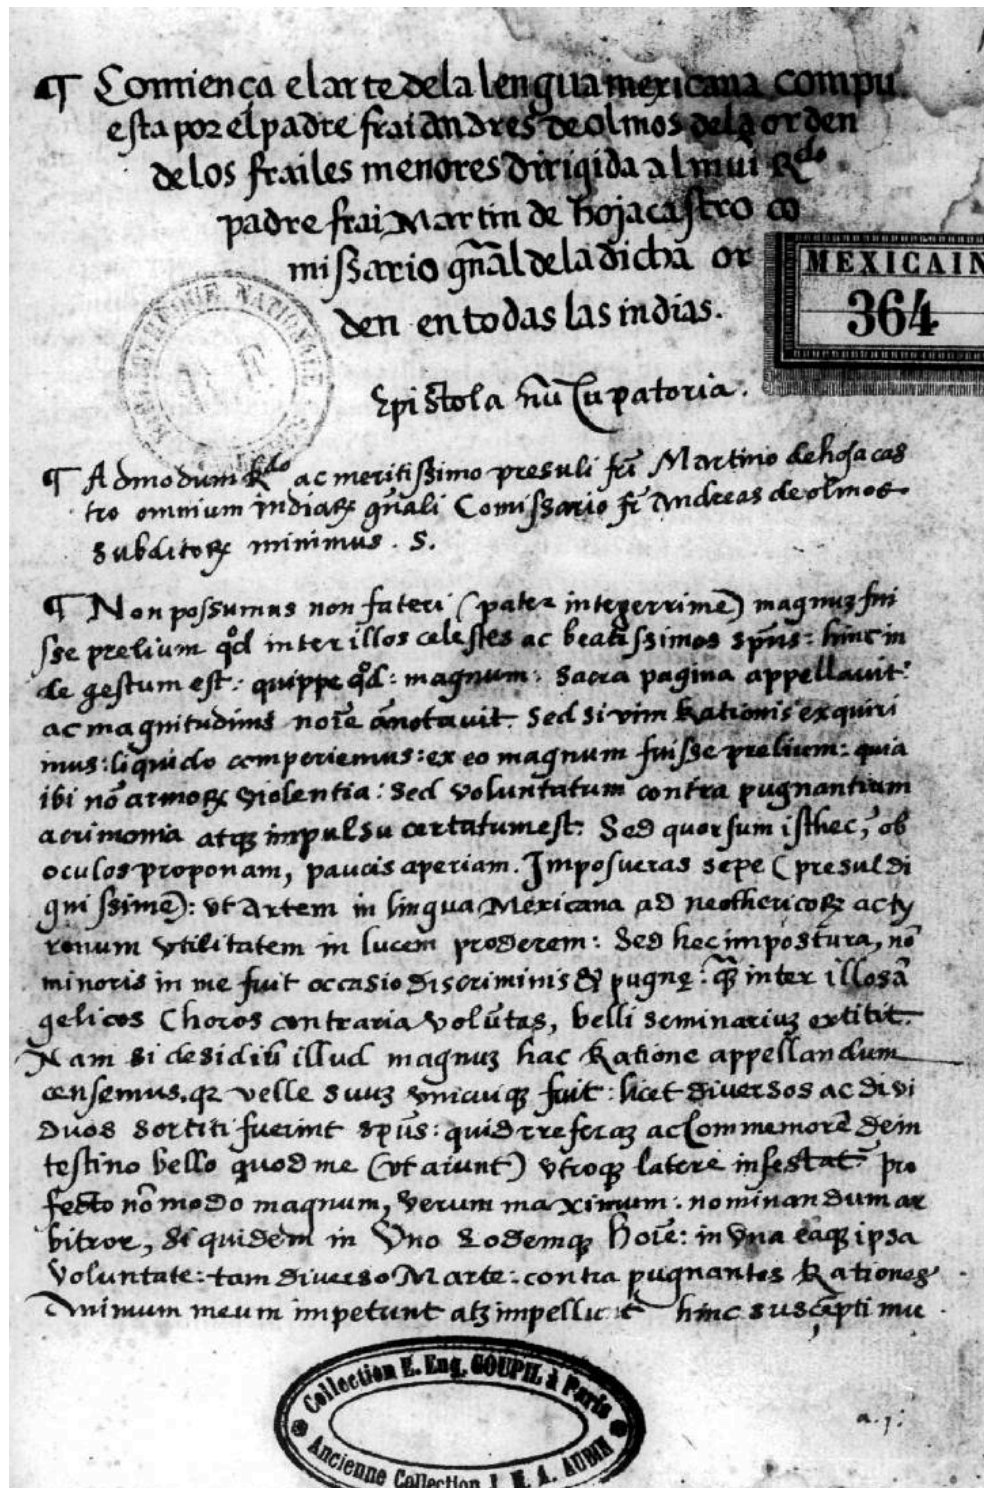 ¶ Comiença el arte de la lengua mexicana compu
esta por el padre frai Andres de olmos dela orden
de los frailes menores dirigida al mui Rdo
padre frai Martin de hojacastro co
missario gñal de la dicha or
den en todas las indias.
MEXICAIN
364
BIBLIOTHEQUE NATIONALE
Epistola nũcupatoria.
¶ Admodum Rdo ac meritissimo presuli fri Martino de hojacas
tro omnium indiaꝝ gñali Comissario fr Andreas de olmos
Subditoꝝ minimus . S.
¶ Non possumus non fateri (pater integerrime) magnuʒ fui
sse prelium qd inter illos celestes ac beatissimos spũs: hinc in
de gestum est: quippe qd: magnum: Sacra pagina appellavit:
ac magnitudinis noĩe ãnotavit. Sed si vim Rationis exquiri
mus: liquido comperiemus: ex eo magnum fuisse prelium: quia
ibi nõ armoꝝ violentia: Sed voluntatum contra pugnantium
acrimonia atqʒ impulsu certatum est: Sed quorsum isthec, ob
oculos proponam, paucis aperiam. Imposueras sepe (presul di
gnissime): vt Artem in lingua Mexicana ad neothericoꝝ ac ty
ronum vtilitatem in lucem proderem: Sed hec impostura, nõ
minoris in me fuit occasio discriminis & pugnę: qʒ inter illos ã
gelicos Choros contraria volũtas, belli seminariuʒ extitit.
Nam si desidiũ illud magnuʒ hac Ratione appellandum
censemus, qʒ velle suuʒ vnicuiqʒ fuit: licet diversos ac divi
duos sortiti fuerint spũs: quid referaʒ ac Commemorẽ de in
testino bello quod me (vt aiunt) vtroqʒ latere infestat: pro
fecto nõ modo magnum, verum maximum: nominandum ar
bitror, Si quidem in Vno Eodemqʒ Hoĩe: in Vna eaqʒ ipsa
Voluntate: tam diverso Marte: contra pugnantes Rationes
Animum meum impetunt atqʒ impellũt hinc suscepti mu
a.j.
Collection E. Eug. GOUPIL à Paris
Ancienne Collection J. M. A. AUBIN